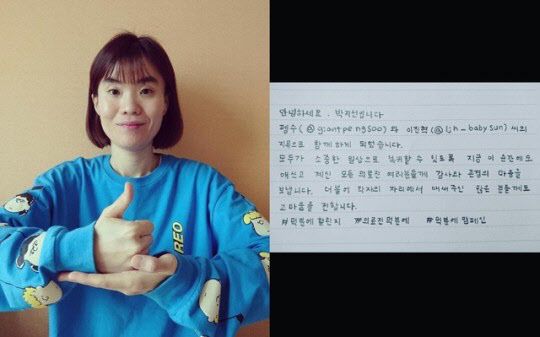 REO
안녕하세요. 박지선입니다
펭수(@giantpengsoo)와 이진현(@ljh_babysun) 씨의
지목으로 함께 하게 됐습니다.
모두가 소중한 일상으로 복귀할 수 있도록 지금 이 순간에도
애쓰고 계신 모든 의료진 여러분들께 감사와 존경의 마음을
보냅니다. 더불어 각자의 자리에서 애써주신 많은 분들께도
고마움을 전합니다.
#덕분에챌린지 #의료진덕분에 #덕분에캠페인